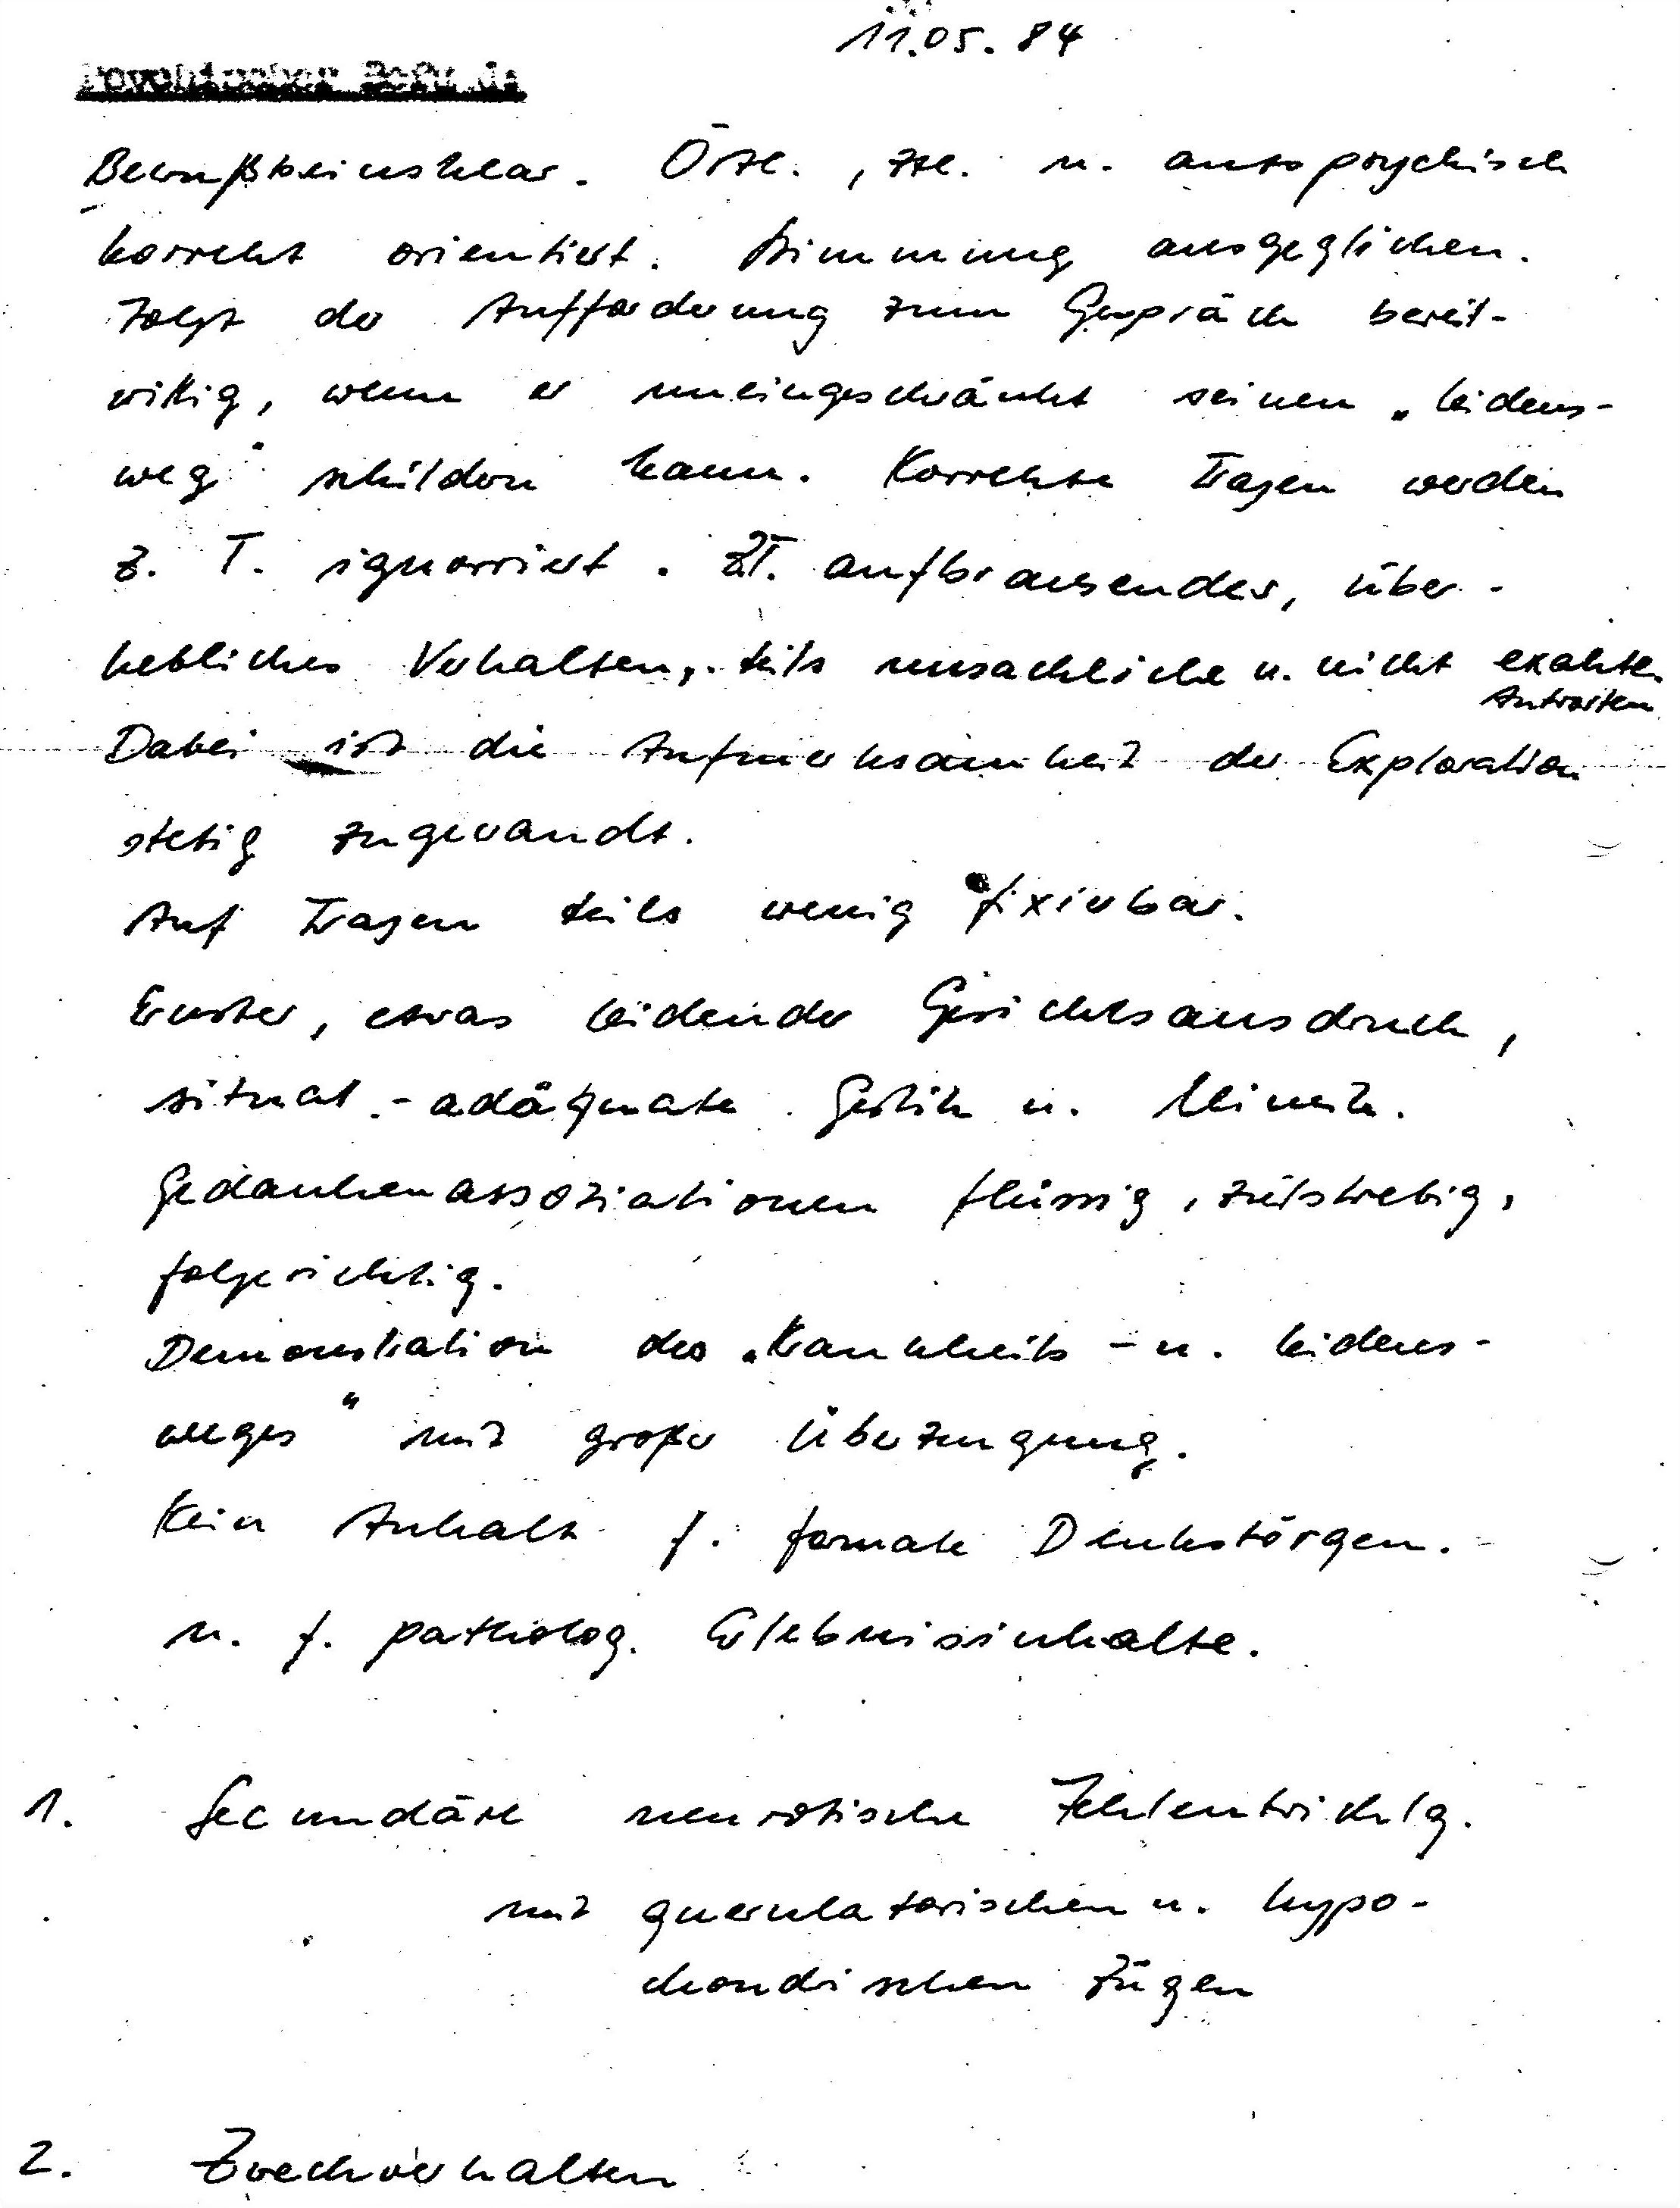 11.05.84
Psychischer Befund
Bewußtseinsklar. Örtl., ztl. u. autopsychisch
korrekt orientiert. Stimmung ausgeglichen.
Folgt der Aufforderung zum Gespräch bereit-
willig, wenn er uneingeschränkt seinen „Leidens-
weg" schildern kann. Korrekte Fragen werden
z. T. ignorriert. ZT. aufbrausendes, über-
hebliches Verhalten, teils unsachliche u. nicht exakte
Antworten
Dabei ist die Aufmerksamkeit der Exploration
stetig zugewandt.
Auf Fragen teils wenig fixierbar.
Ernster, etwas leidender Gesichtsausdruck,
situat.-adäquate Gestik u. Mimik.
Gedankenassoziationen flüssig, zielstrebig,
folgerichtig.
Demonstration des „Krankheits- u. Leidens-
weges" mit großer Überzeugung.
Kein Anhalt f. formale Denkstörgen.
u. f. patholog. Erlebnisinhalte.
1. Secundäre neurotische Fehlentwicklg.
mit querulatorischen u. hypo-
chondrischen Zügen
2. Zweckverhalten